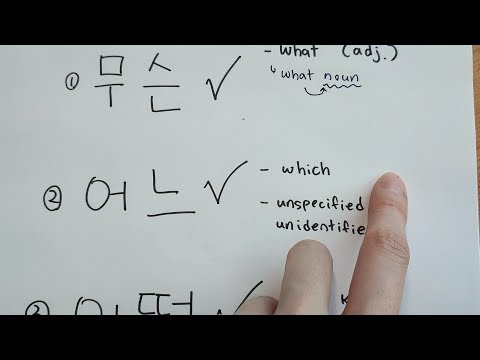 ① 무슨 ✓ - what (adj.)
↳ what noun
② 어느 ✓ - which
- unspecified
unidentifie